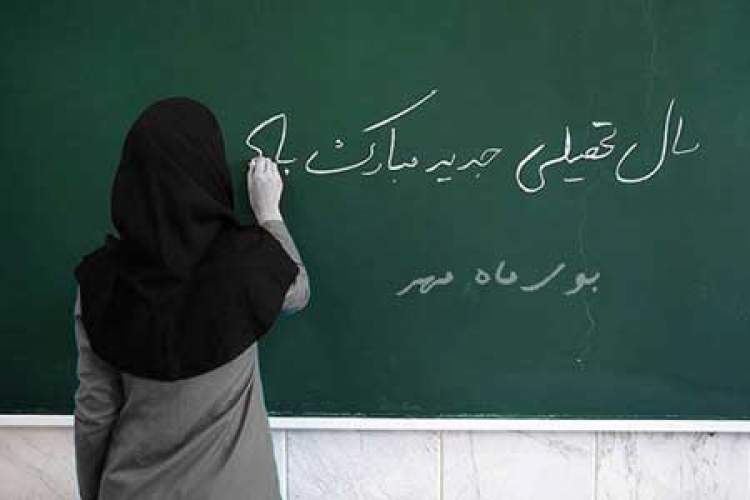 سال تحصیلی جدید مبارک با
بوی ماه مهر